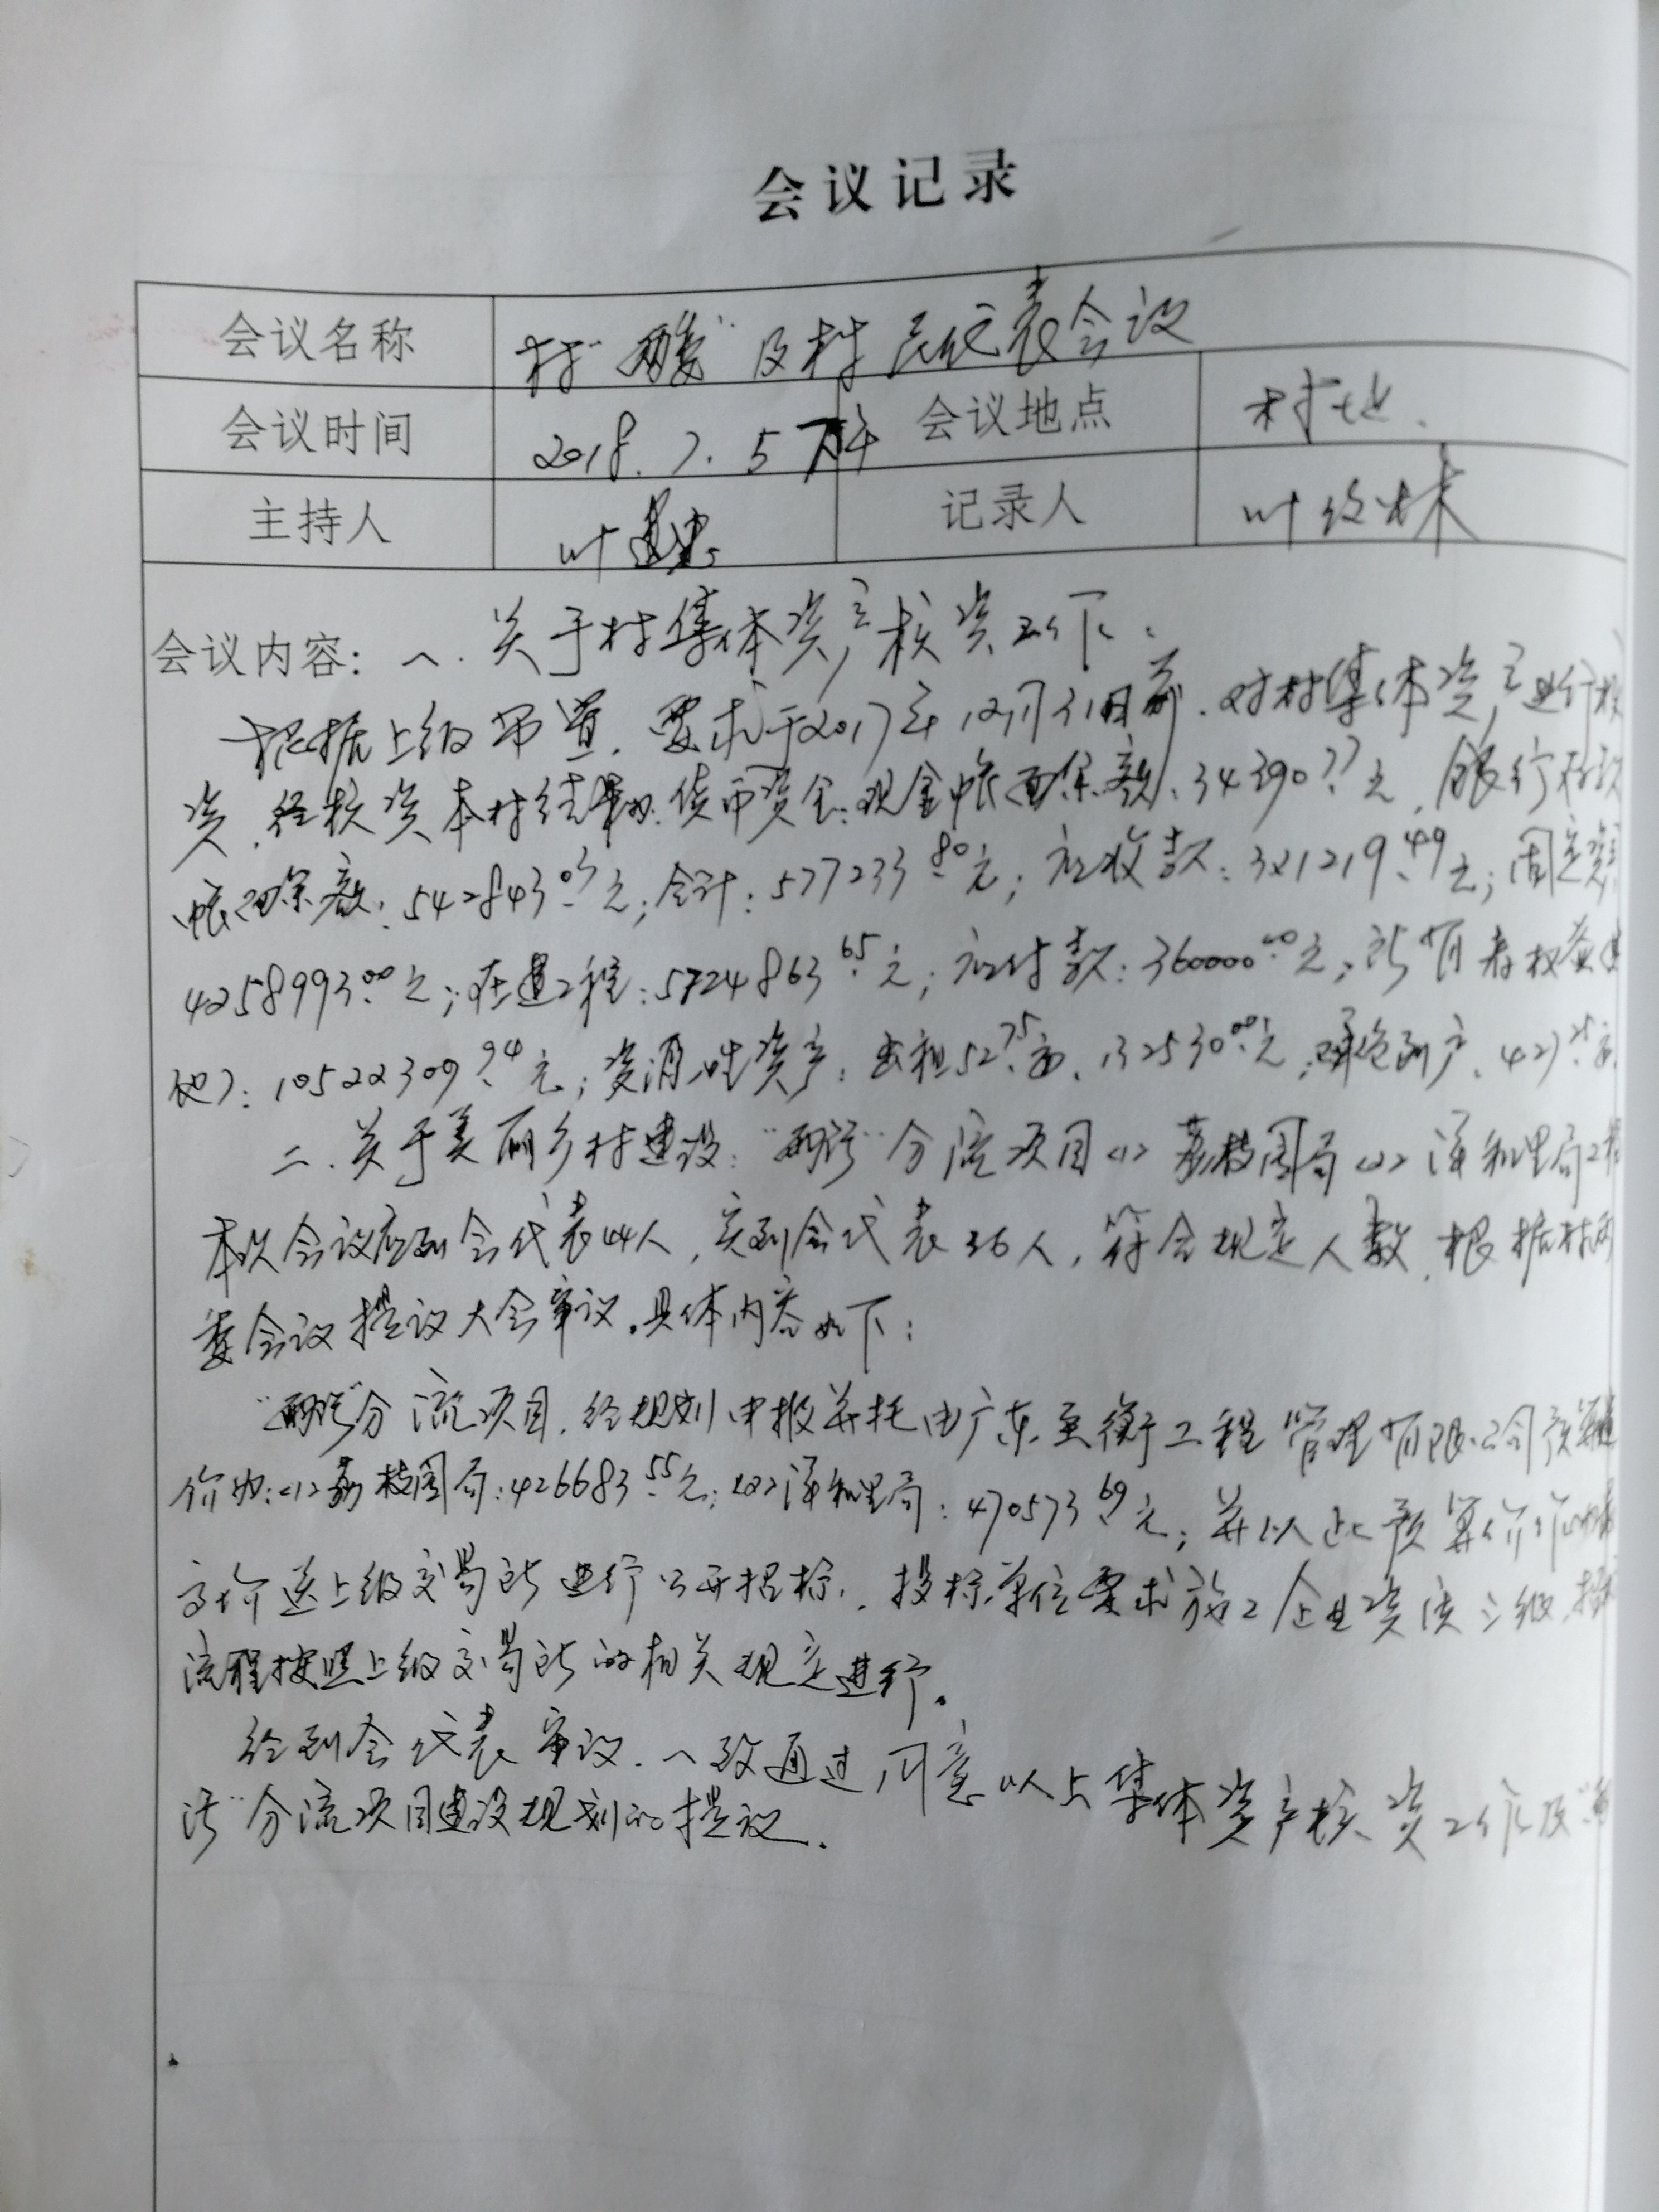 会议记录
会议名称 村“两委”及村民代表会议
会议时间 2018.7.5下午 会议地点 村址.
主持人 叶 记录人 叶 林
会议内容: 一.关于村集体资产核资工作.
根据上级布置,要求于2017年12月31日前.对村集体资产进行核
资,经核资本村结果如:货币资金:现金帐面余额:34390.77元,银行存款
帐面余额:542843.03元;合计:577233.80元;应收款:321219.49元;固定资产
4258993.00元;在建工程:5724863.65元;应付款:360000.00元;所有者权益
:10522309.94元;资源性资产:出租52.75亩、132530.00元,承包到户、427.25亩
二.关于美丽乡村建设:“雨污”分流项目<1>荔枝围
本次会议应到会代表44人,实到会代表36人,符合规定人数,根据村两
委会议提议大会审议.具体内容如下:
“雨污”分流项目.经规划申报并托由广东至衡工程管理有限公司预算
价为:<1>荔枝围:426683.55元;<2>:470573.69元;并以此预算价作为最
高价送上级交易所进行公开招标.投标单位要求施工企业资质三级,招标
流程按照上级交易所的相关规定进行.
经到会代表审议.一致通过同意以上集体资产核资工作及“雨
污”分流项目建设规划的提议.